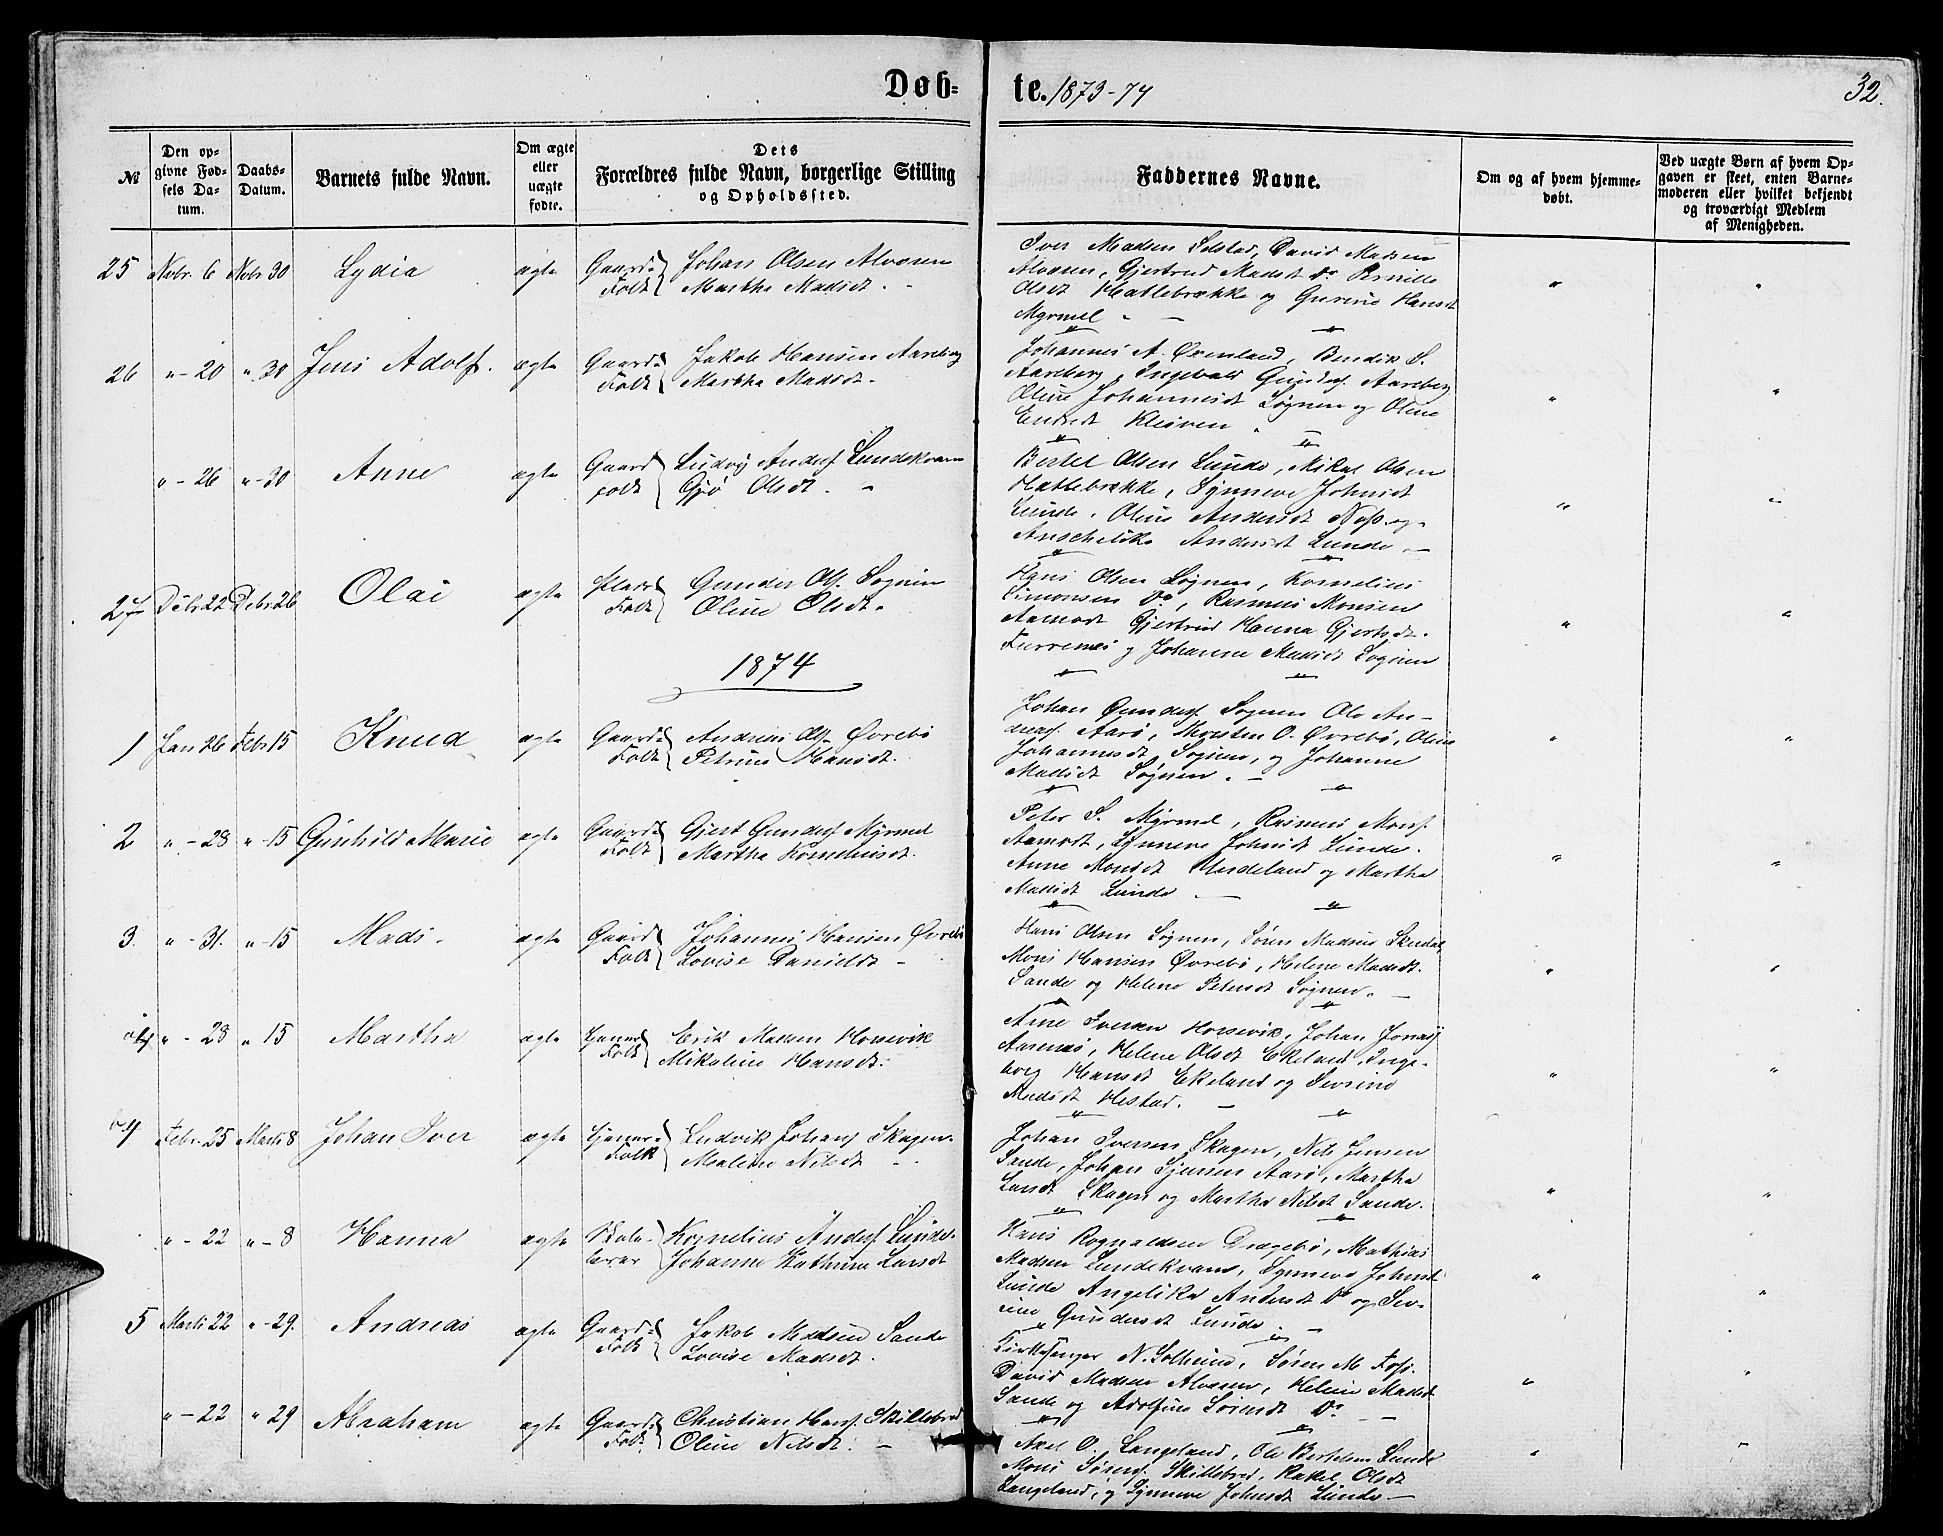 Døb=
te. 1873-74
32.
№
Den op=
givne Fød=
sels Da=
tum.
Daabs=
Datum.
Barnets fulde Navn.
Om ægte
eller
uægte
fødte.
Dets
Forældres fulde Navn, borgerlige Stilling
og Opholdssted.
Faddernes Navne.
Om og af hvem hjemme=
døbt.
Ved uægte Børn af hvem Op=
gaven er skeet, enten Barne=
moderen eller hvilket bekjendt
og troværdigt Medlem
af Menigheden.
25 Nobr. 6 Nobr 30 Lydia ægte Gaard= Folk Johan Olsen Alvøren
Martha Madsdt.
Iver Madsen Solstad, David Madsen
Alvøren, Gjertrud Madsdt Do Pernille
Olsdt Hatlebrække og Gurine Hansdt
Myrmel
26 " - 20 " 30 Jens Adolf. ægte Gaard= Folk Jakob Hansen Aareberg
Martha Madsdt.
Johannes A. Øvenland, Bendik S.
Aareberg, Ingebald Gunds. Aareberg
Oline Johannesdt Søgnen og Oline
Endredt Kleiven
" - 26 " - 30 Anne ægte Gaard folk Ludvig Anders. Lundekvam
Gjø Olsdt.
Bertel Olsen Lunde, Mikal Olsen
Hatlebrække, Synneve Johnsdt
Lunde, Oline Andersdt Næss og
Anschelika Andersdt Lunde
27 Debr 22 Debr 26 Olai ægte Plads Folk Gunder Ols. Sognen
Oline Olsdt.
Hans Olsen Søgnen, Kornelius
Simonsen Do, Rasmus Monsen
Aamodt Gjertrud Hanna Gjertsdt.
Furrenes og Johanne Madsdt Sognen
1874
1 Jan 26 Febr 15 Knud ægte Gaard= Folk Andreas Ols. Øvrebø
Petrine Hansdt.
Johan Gunders. Sognen Ole An=
dreas. Aarø, Thorsten O. Øvrebø, Oline
Johannesdt, Sognen, og Johanne
Madsdt Søgnen.
2 " - 28 " - 15 Gunhild Marie ægte Gaard= Folk Gjert Gunders. Myrmel
Martha Korneliusdt.
Peter S. Myrmel, Rasmus Mons.
Aamodt, Synneve Johnsdt Lunde.
Anne Monsdt Indeland og Martha
Madsdt Lunde
3. " - 31. " - 15 Mads. ægte Gaard Folk Johannes Hansen Øvrebø
Lovise Danieldt
Hans Olsen Søgnen, Søren Madsen Skudal,
Mons Hansen Øvrebø, Helene Madsdt.
Sande og Helene Petersdt Søgnen.
4 " - 28 " 15 Martha ægte Tjener Folk Erik Madsen Horsevik
Mikaline Hansdt.
Arne Iversen Horsevik, Johan Jonas.
Aarenæs, Helene Olsdt Ekeland, Inge=
borg Hansdt Ekeland og Sevrine
Madsdt Hestad.
4 Febr. 25 Marts 8 Johan Iver ægte Tjener= Folk Ludvik Johans. Skagen.
Maline Nilsdt
Johan Iversen Skagen, Nils Jensen
Sande, Johan Sjursen Aarø, Martha
Larsdt Skagen og Martha Nilsdt Sande.
" - 22 " - 8 Hanna ægte Skole= lærer Kornelius Anders. Lunde.
Johanne Kathrine Larsdt
Hans Rognaldsen Drægebø, Mathias
Madsen Lundekvam, Synneve Johnsdt
Lunde Angelika Andersdt Do og Sev=
rine Gundersdt Lunde.
5 Marts 22 " - 29. Andreas ægte Gaard= Folk Jakob Madsen Sande
Lovise Madsdt.
Kirkesanger N. Solheim, Søren M. Foss.
David Madsen Alvøren, Helene Madsdt
Sande og Adolfine Sørensdt Do
" - 22 " 29 Abraham ægte Gaard= Folk Christian Hans. Skillebred
Oline Nilsdt.
Axel O. Langeland, Ole Bertelsen Lunde
Mons Sørens. Skillebred, Rakel Olsdt
Langeland, og Synneve Johnsdt Lunde